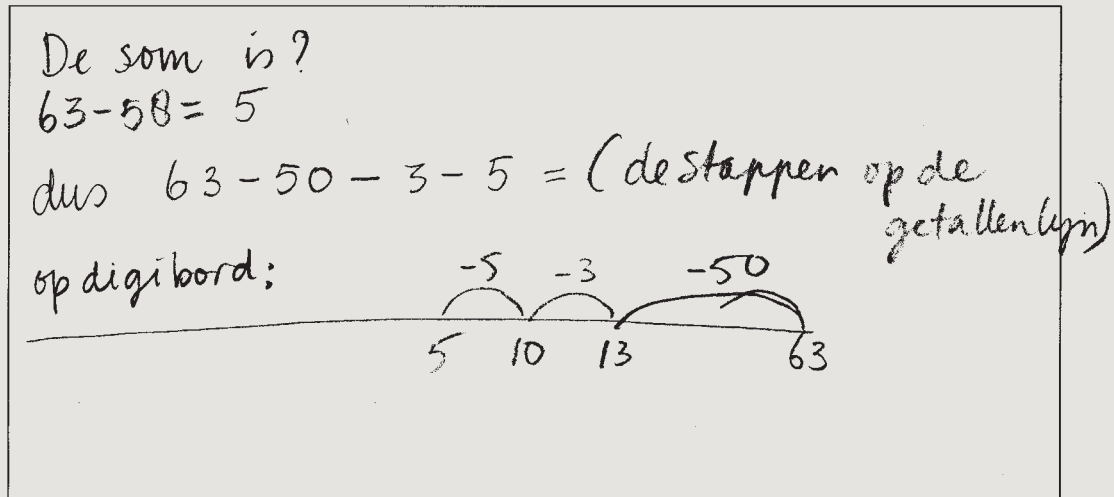 De som is?
63-58= 5
dus 63-50-3-5 = (de stappen op de
getallenlijn)
op digibord:
-5 -3 -50
5 10 13 63